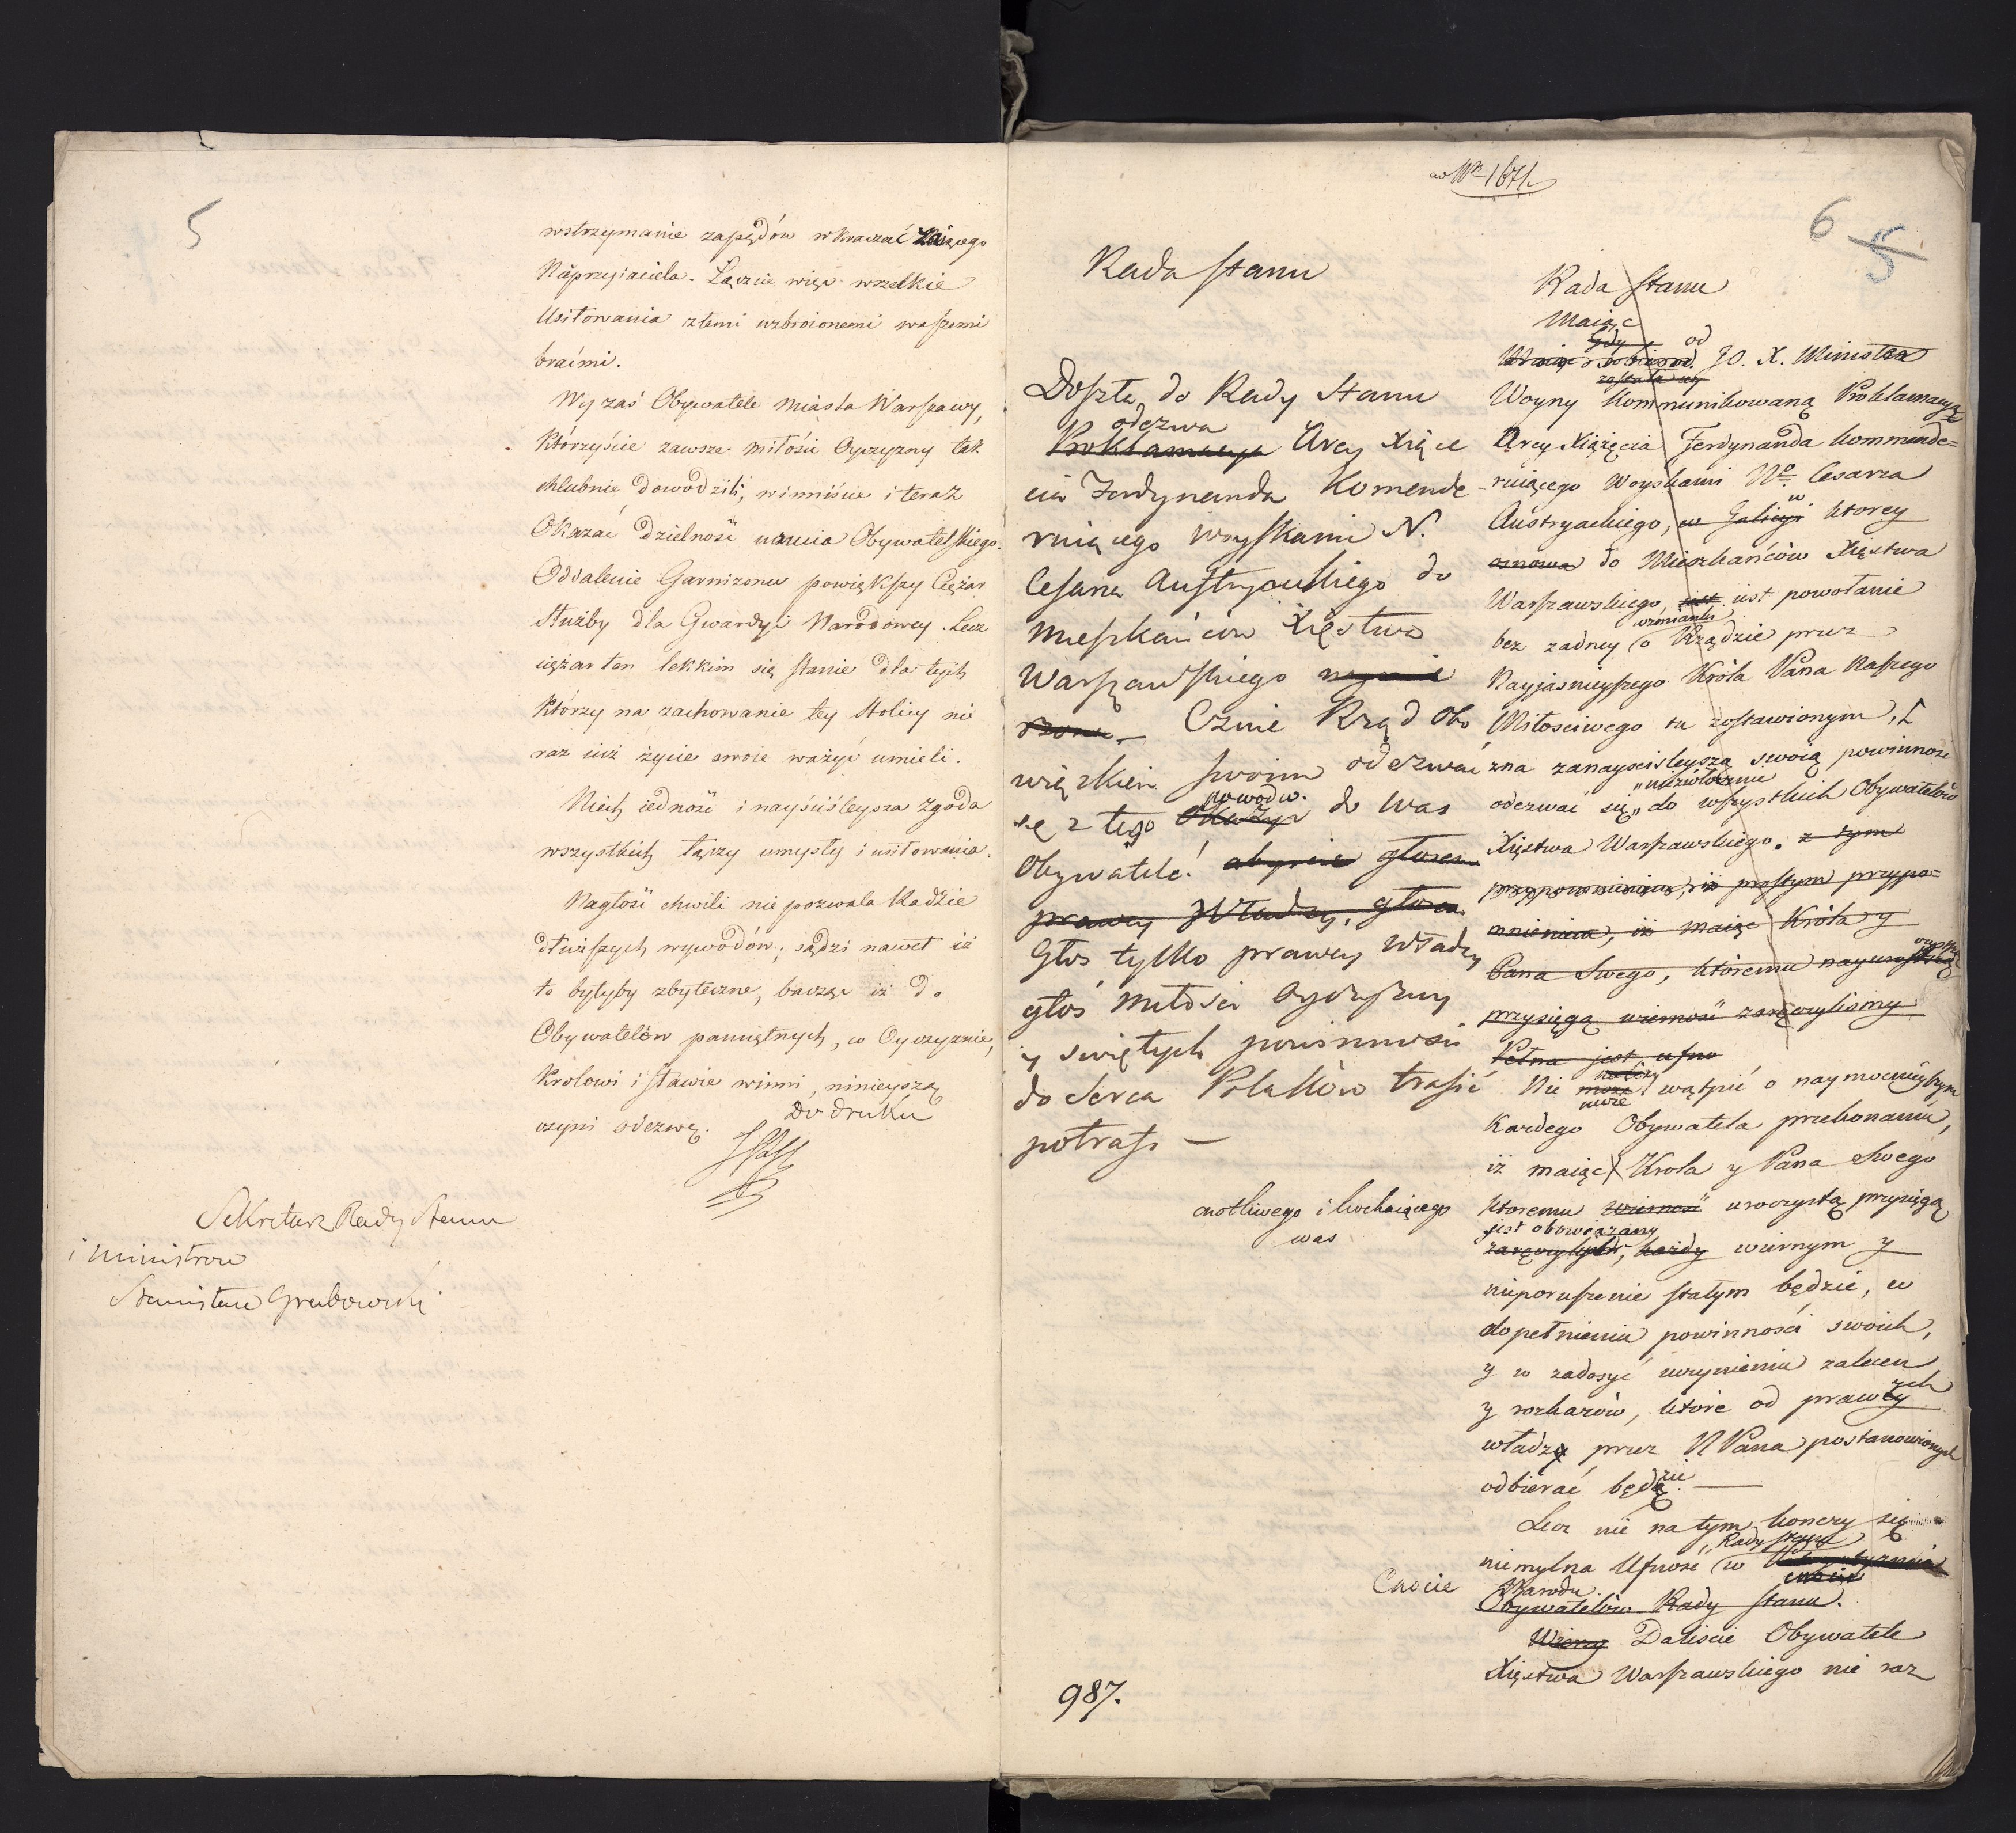 5
wstrzymanie zapędów wkraczać
Nieprzyiaciela. Łączcie więc wszelkie
Usiłowania z temi uzbroionemi waszemi
braćmi.
Wy zaś Obywatele Miasta Warszawy,
Którzyście zawsze miłość Oyczyzny tak
chlubnie dowodzili, winniście i teraz
Okazać dzielność uczucia Obywatelskiego.
Oddalenie Garnizonu powiększy Ciężar
Służby dla Gwardyi Narodowey. Lecz
ciężar ten lekkim się stanie dla tych
Którzy na zachowanie tey Stolicy nie
raz iuż życie swoie ważyć umieli.
Niech iedność i nayściśleysza zgoda
wszystkich łączy umysły i usiłowania.
Nagłość chwili nie pozwala Radzie
dłuższych wywodów; sądzi nawet iż
te byłyby zbyteczne, bacząc iż do
Obywatelów pamiętnych, co Oyczyznie,
Krolowi i sławie winni, ninieyszą
czyni odezwę.
do druku
Sekretarz Rady Stanu
i Ministrow
Stanisław Grabowski
6 5
Rada Stanu
Doszła do Rady Stanu
odezwa
Proklamacya Arcy Xiąże
cia Ferdynanda Komende
ruiącego woyskami N.
Cesarza Austryackiego do
Mieszkańców Xięstwa
Warszawskiego
Czuie Rząd obo
wiązkiem swoim odezwać
powodu
się z tego do Was
Obywatele! abyście głosem
prawey Władzy, głosem
Głos tylko prawey Władzy
głos miłości Oyczyzny
y świętych powinności
do serca Polaków trafić
potrafi —
cnotliwego i kochaiącego
was
Cnocie
987.
Rada Stanu
Maiąc
Gdy od
JO. X. Ministra
została
Woyny kommunikowaną Proklamacyą
Arcy Xiążęcia Ferdynanda kommende=
ruiącego Woyskami No. Cesarza
w
Austryackiego, w Galicyi ktorey
osnowa do Mieszkańców Xięstwa
Warszawskiego, iest iest powołanie
wzmianki
bez zadney o Rządzie przez
Nayjasnieyszego Króla Pana Naszego
Miłościwego tu zostawionym,
zna zanayscisleyszą swoią powinnosc
niezwłocznie
odezwać się do wszystkich Obywatelów
Xięstwa Warszawskiego. z tym
przypomnieniem, iż prostym przypo=
mnieniem, iż maiąc Króla y
Pana Swego, któremu
przysięgą wierność zaręczyliśmy
Pełna jest ufno
należy
Nie może wątpić o naymocnieyszym
Kazdego Obywatela przekonaniu,
iż maiąc Krola y Pana Swego
ktoremu wierność uroczystą przysięgą
jest obowiązany
każdy wiernym y
nieporuszenie stałym będzie, w
dopełnieniu powinności swoich,
y w zadosyć uczynieniu zaleceń
y rozkazów, które od prawych
władzę przez N Pana postanowionych
odbierać będzie. —
Lecz nie na tym konczy się
Rady Stanu
niemylna Ufność w
Narodu
Obywatelów Rady Stanu.
Wiemy Daliscie Obywatele
Xięstwa Warszawskiego nie raz